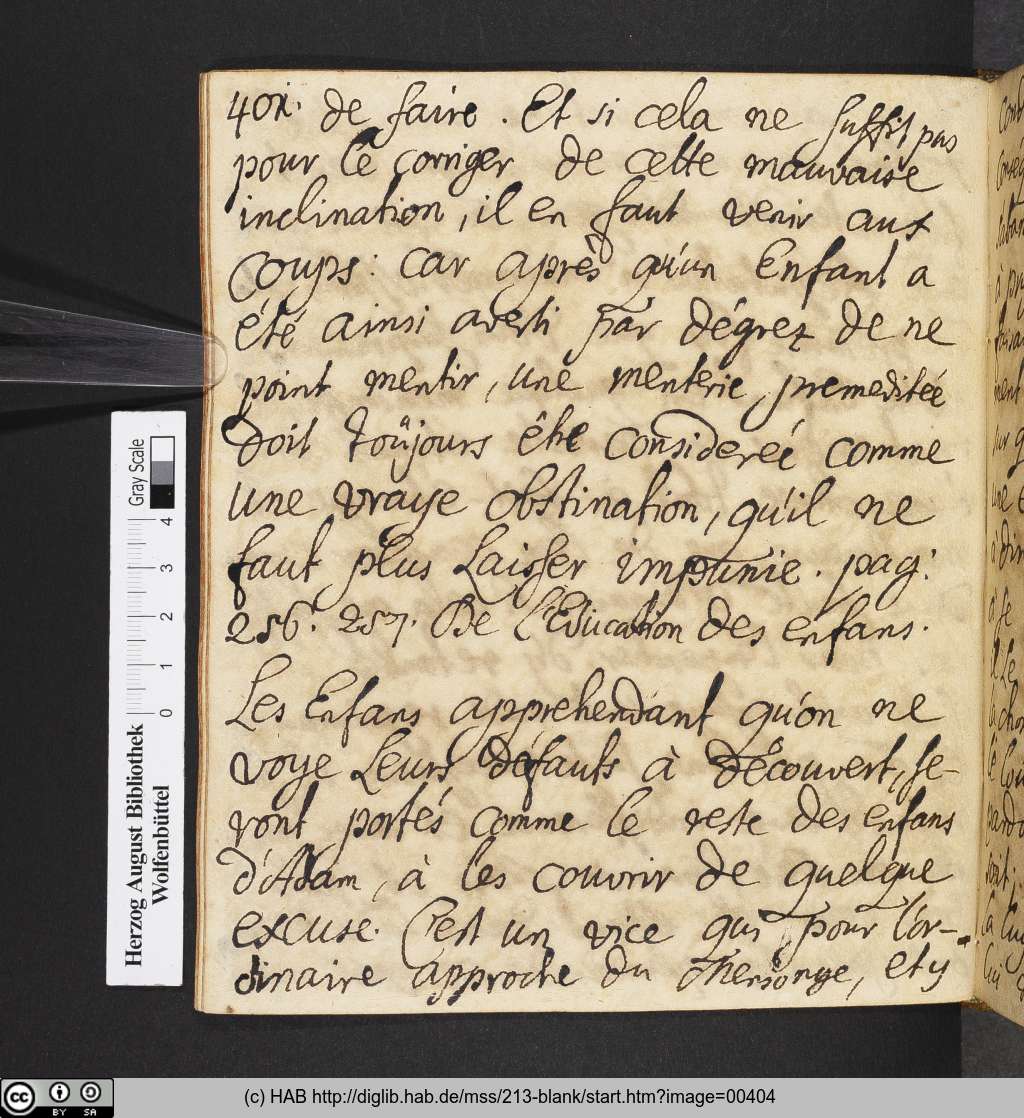 401. de faire. Et si cela ne suffit pas
pour le corriger de cette mauvaise
inclination, il en faut venir aux
coups: car après qu'un Enfant a
été ainsi averti par dégrez de ne
point mentir, une menterie premeditée
doit toûjours être considereé comme
une vraye obstination, qu'il ne
faut plus Laisser impunie. pag:
256. 257. De l'Education des enfans.
Les Enfans apprehendant qu'on ne
voye Leurs défauts à découvert, se-
ront portés comme le reste des enfans
d'Adam, à les couvrir de quelque
excuse. C'est un vice qui pour l'or-
dinaire approche du Mensonge, et y
Herzog August Bibliothek
Wolfenbüttel
0 1 2 3 4
Gray Scale
cc BY SA
(c) HAB http://diglib.hab.de/mss/213-blank/start.htm?image=00404